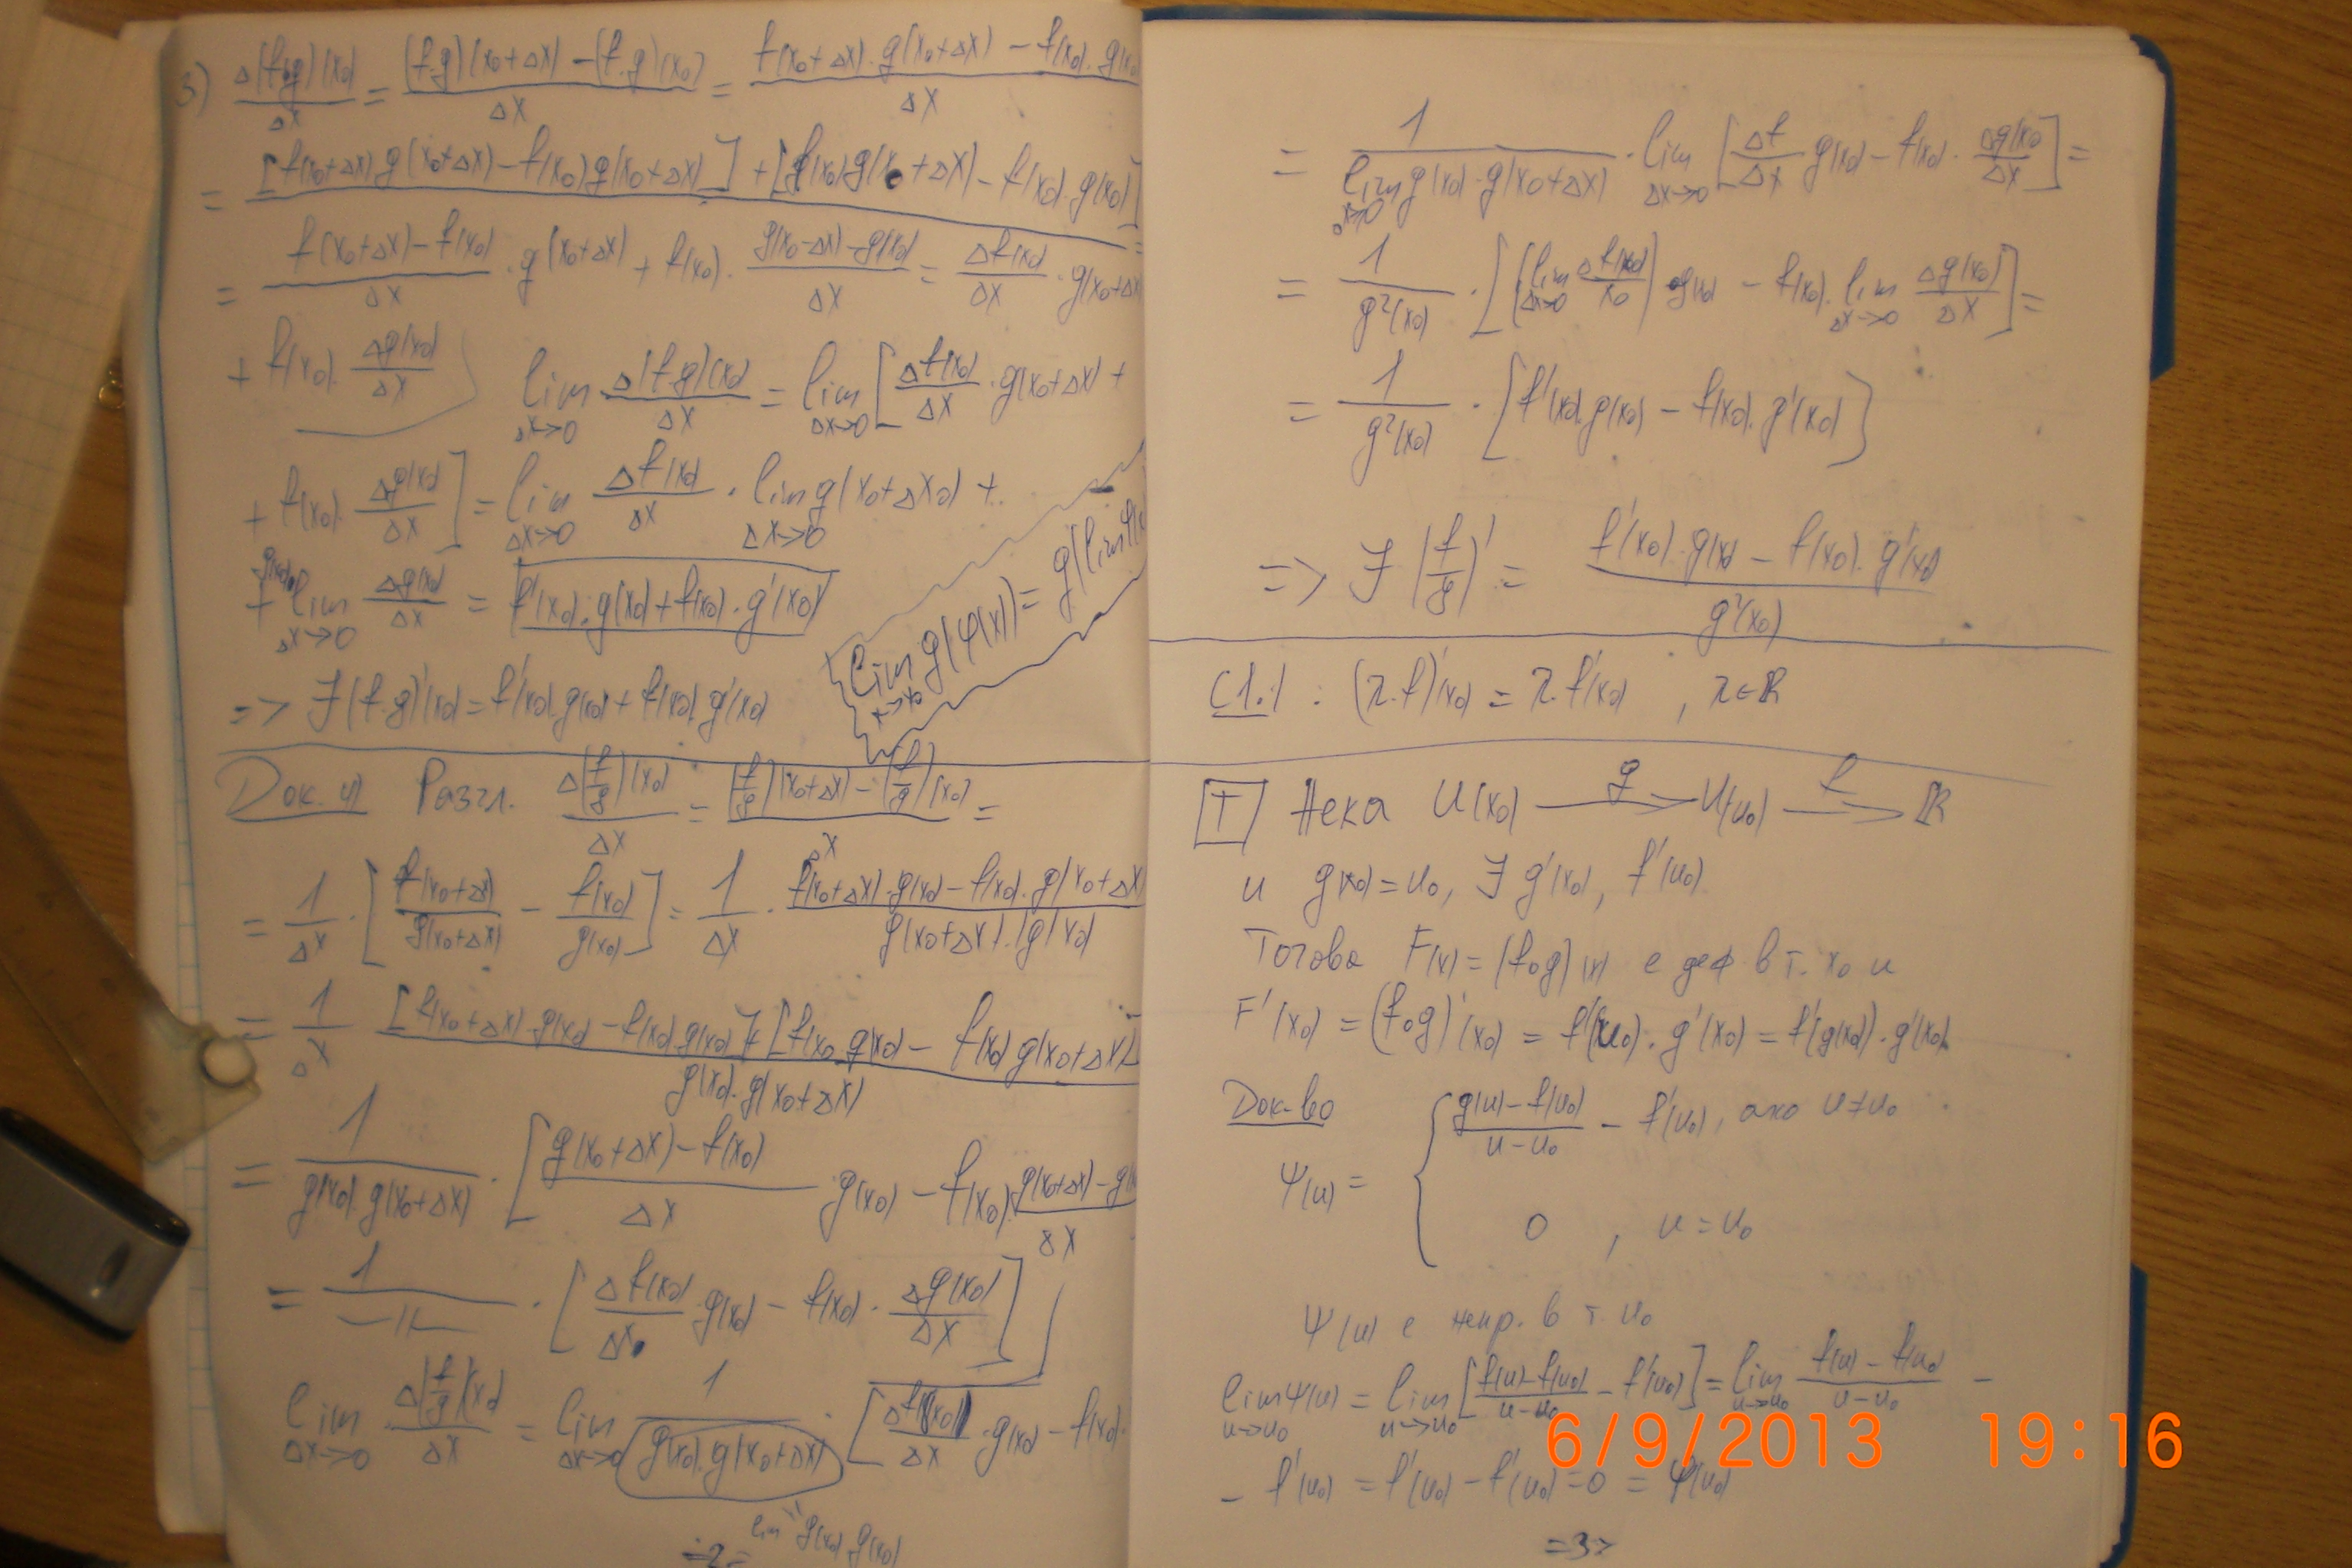 3) Δ(f.g)(x₀)/Δx = (f.g)(x₀+Δx) − (f.g)(x₀)/Δx = f(x₀+Δx).g(x₀+Δx) − f(x₀).g(x₀)/Δx
= [f(x₀+Δx)g(x₀+Δx) − f(x₀)g(x₀+Δx)] + [f(x₀)g(x₀+Δx) − f(x₀).g(x₀)]
= f(x₀+Δx) − f(x₀)/Δx . g(x₀+Δx) + f(x₀). g(x₀−Δx) − g(x₀)/Δx = Δf(x₀)/Δx . g(x₀+Δx
+ f(x₀). Δg(x₀)/Δx
lim Δx→0 Δ(f.g)(x₀)/Δx = lim Δx→0 [Δf(x₀)/Δx . g(x₀+Δx) +
+ f(x₀). Δg(x₀)/Δx] = lim Δx→0 Δf(x₀)/Δx . lim Δx→0 g(x₀+Δx₀) +
+ lim Δx→0 Δg(x₀)/Δx = f'(x₀).g(x₀) + f(x₀).g'(x₀)
lim x→x₀ g(φ(x)) = g(lim φ(
=> ∃ (f.g)'(x₀) = f'(x₀).g(x₀) + f(x₀).g'(x₀)
Док. 4) Разгл. Δ(f/g)(x₀)/Δx = (f/g)(x₀+Δx) − (f/g)(x₀)/Δx =
= 1/Δx . [f(x₀+Δx)/g(x₀+Δx) − f(x₀)/g(x₀)] = 1/Δx . f(x₀+Δx).g(x₀) − f(x₀).g(x₀+Δx/g(x₀+Δx).g(x₀)
= 1/Δx [f(x₀+Δx).g(x₀) − f(x₀).g(x₀)] + [f(x₀ g(x₀) − f(x₀) g(x₀+Δx)]/g(x₀).g(x₀+Δx)
= 1/g(x₀).g(x₀+Δx) . [g(x₀+Δx) − f(x₀)/Δx g(x₀) − f(x₀). g(x₀+Δx) − g(/Δx
= 1/—//— . [Δf(x₀)/Δx₀ . g(x₀) − f(x₀) . Δg(x₀)/Δx]
lim Δx→0 Δ(f/g)(x₀)/Δx = lim Δx→0 1/g(x₀).g(x₀+Δx) . [Δf(x₀)/Δx . g(x₀) − f(x₀).
lim g(x₀) g(x₀)
=2=
= 1/lim Δx→0 g(x₀).g(x₀+Δx) . lim Δx→0 [Δf/Δx g(x₀) − f(x₀) . Δg(x₀/Δx] =
= 1/g²(x₀) . [(lim Δx→0 Δf(x₀)/x₀) g(x₀) − f(x₀). lim Δx→0 Δg(x₀)/Δx] =
= 1/g²(x₀) . [f'(x₀).g(x₀) − f(x₀).g'(x₀)]
=> ∃ (f/g)' = f'(x₀).g(x₀) − f(x₀).g'(x₀)/g²(x₀)
Сл.: (λ.f)'(x₀) = λ.f'(x₀) , λ∈ℝ
T Нека U(x₀) —g→ U(u₀) —f→ ℝ
и g(x₀) = u₀, ∃ g'(x₀), f'(u₀)
Тогава F(x) = (f∘g)(x) е деф в т. x₀ и
F'(x₀) = (f∘g)'(x₀) = f'(u₀).g'(x₀) = f'(g(x₀)).g'(x₀)
Док-во
Ψ(u) = { g(u) − f(u₀)/u − u₀ − f'(u₀), ако u≠u₀
0 , u = u₀
Ψ(u) е непр. в т. u₀
lim u→u₀ Ψ(u) = lim u→u₀ [f(u) − f(u₀)/u − u₀ − f'(u₀)] = lim u→u₀ f(u) − f(u₀)/u − u₀ −
− f'(u₀) = f'(u₀) − f'(u₀) = 0 = Ψ(u₀)
=3=
6/9/2013 19:16